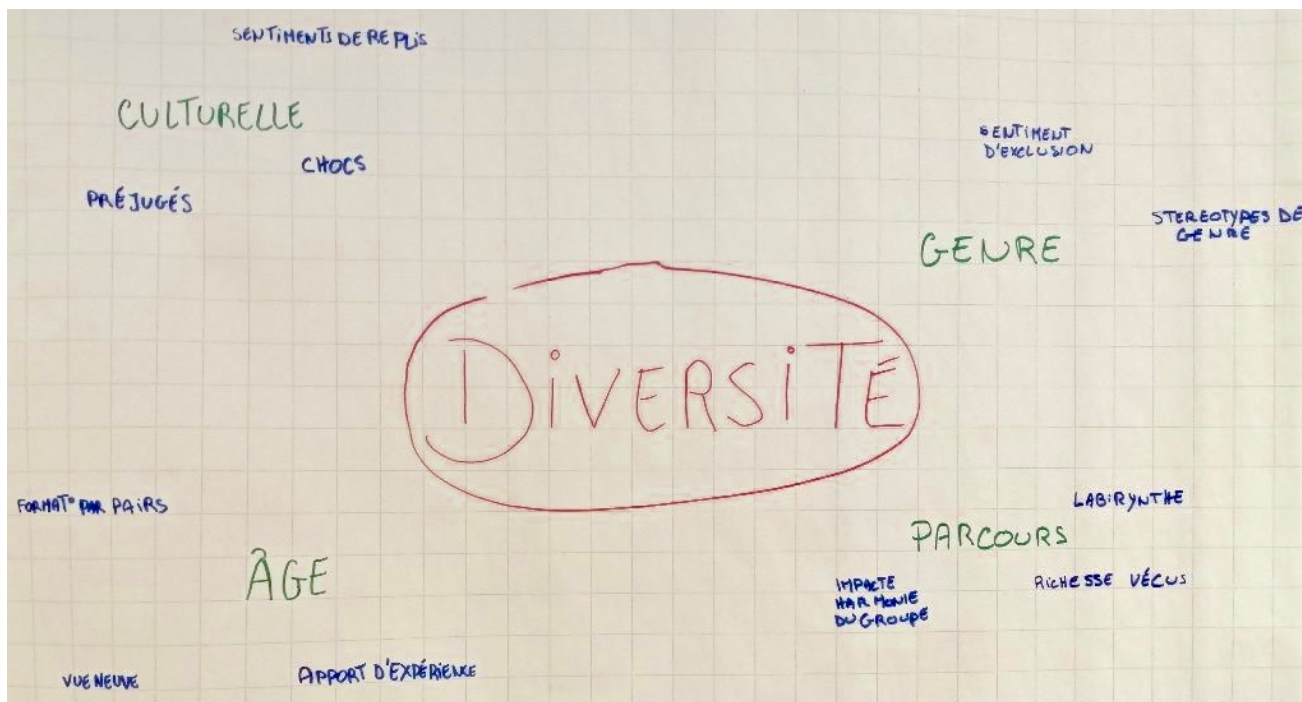 SENTIMENTS DE REPLIS
CULTURELLE
CHOCS
PRÉJUGÉS
SENTIMENT
D'EXCLUSION
STEREOTYPES DE
GENRE
GENRE
DIVERSITÉ
FORMAT° PAR PAIRS
ÂGE
VUE NEUVE
APPORT D'EXPÉRIENCE
LABIRYNTHE
PARCOURS
IMPACTE
HARMONIE
DU GROUPE
RICHESSE VÉCUS